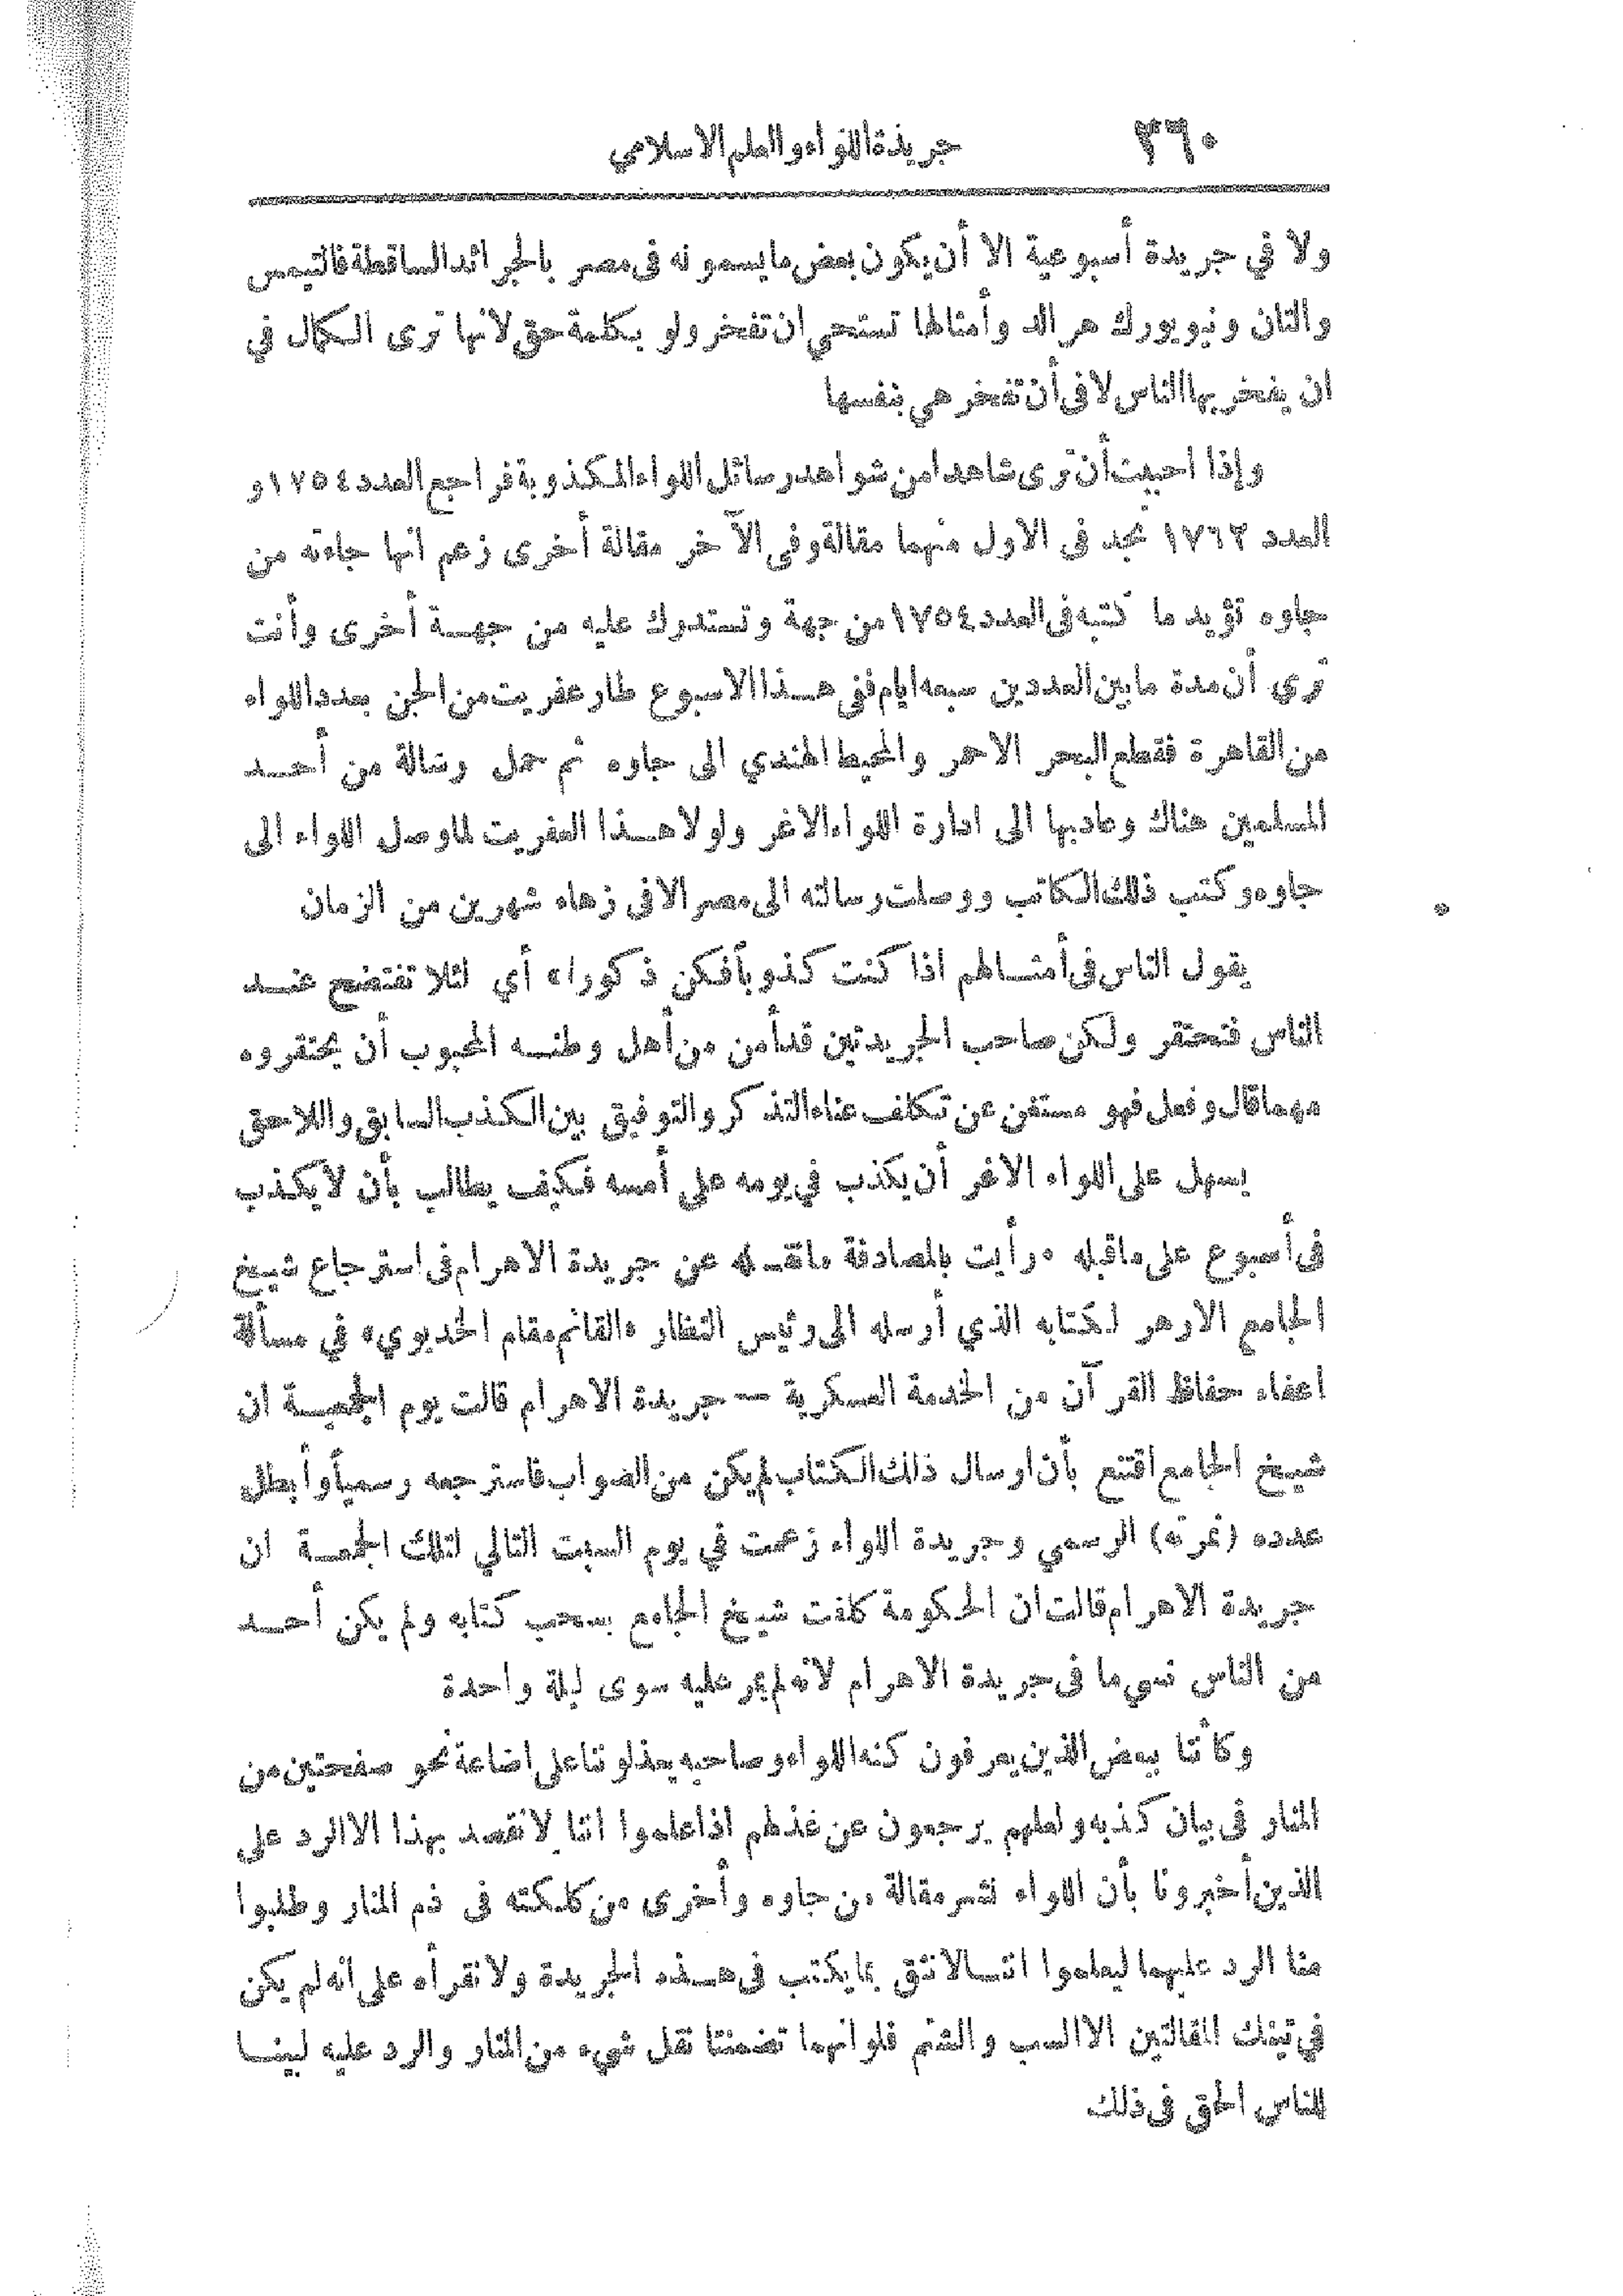 ٣٦٠
جريدة اللواء والعلم الاسلامي
ولا في جريدة أسبوعية الا أن يكون بعض ما يسمونه في مصر بالجرائد الساقطة فالتيمس
والتان ونيويورك هرالد وأمثالها تستحي ان تفخر ولو بكلمة حق لانها ترى الكمال في
ان يفخر بها الناس لا في أن تفخر هي بنفسها
وإذا احببت أن ترى شاهدا من شواهد رسائل اللواء المكذوبة فراجع العدد ١٧٥٤ و
العدد ١٧٦٢ تجد في الاول منهما مقالة وفي الآخر مقالة أخرى زعم انها جاءته من
جاوه تؤيد ما كتبه في العدد ١٧٥٤ من جهة وتستدرك عليه من جهة أخرى وأنت
ترى أن مدة ما بين العددين سبعه ايام ففي هذا الاسبوع طار عفريت من الجن بعدد اللواء
من القاهرة فقطع البحر الاحمر والمحيط الهندي الى جاوه ثم حمل رسالة من أحد
المسلمين هناك وعاد بها الى ادارة اللواء الاغر ولولا هذا العفريت لما وصل اللواء الى
جاوه وكتب ذلك الكاتب ووصلت رسالته الى مصر الا في زهاء شهرين من الزمان
يقول الناس في أمثالهم اذا كنت كذوبا فكن ذكورا، أي لئلا تفتضح عند
الناس فتحتقر ولكن صاحب الجريدتين قد أمن من أهل وطنه المحبوب أن يحتقروه
مهما قال وفعل فهو مستغن عن تكلف عناء التذكر والتوفيق بين الكذب السابق واللاحق
يسهل على اللواء الاغر أن يكذب في يومه على أمسه فكيف يطالب بأن لا يكذب
في أسبوع على ما قبله . رأيت بالمصادفة ما نقله عن جريدة الاهرام في استرجاع شيخ
الجامع الازهر لكتابه الذي أرسله الى رئيس النظار «القائم مقام الخديوي» في مسألة
اعفاء حفاظ القرآن من الخدمة العسكرية — جريدة الاهرام قالت يوم الجمعة ان
شيخ الجامع اقتنع بأن ارسال ذلك الكتاب لم يكن من الصواب فاسترجعه رسمياً وأبطل
عدده (نمرته) الرسمي وجريدة اللواء زعمت في يوم السبت التالي لتلك الجمعة ان
جريدة الاهرام قالت ان الحكومة كلفت شيخ الجامع بسحب كتابه ولم يكن أحد
من الناس نسي ما في جريدة الاهرام لانه لم يمر عليه سوى ليلة واحدة
وكأننا ببعض الذين يعرفون كنه اللواء وصاحبه يعذلوننا على اضاعة نحو صفحتين من
المنار في بيان كذبه ولعلهم يرجعون عن عذلهم اذا علموا اننا لا نقصد بهذا الا الرد على
الذين أخبرونا بأن اللواء نشر مقالة من جاوه وأخرى من كلكته في ذم المنار وطلبوا
منا الرد عليهما ليعلموا اننا لا نثق بما يكتب في هذه الجريدة ولا نقرأه على انه لم يكن
في تينك المقالتين الا السب والشتم فلو انهما تضمنتا نقل شيء من المنار والرد عليه لبينا
للناس الحق في ذلك